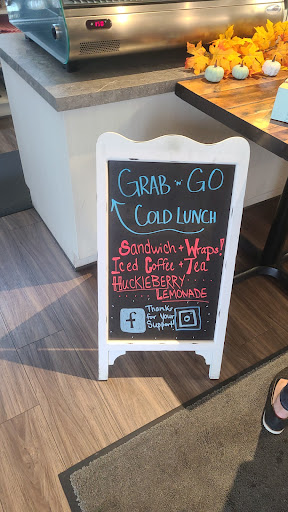 GRAB 'N' GO
COLD LUNCH
SANDWICH + WRAPS!
ICED COFFEE + TEA
HUCKLEBERRY
LEMONADE
f
Thanks
for Your
Support!